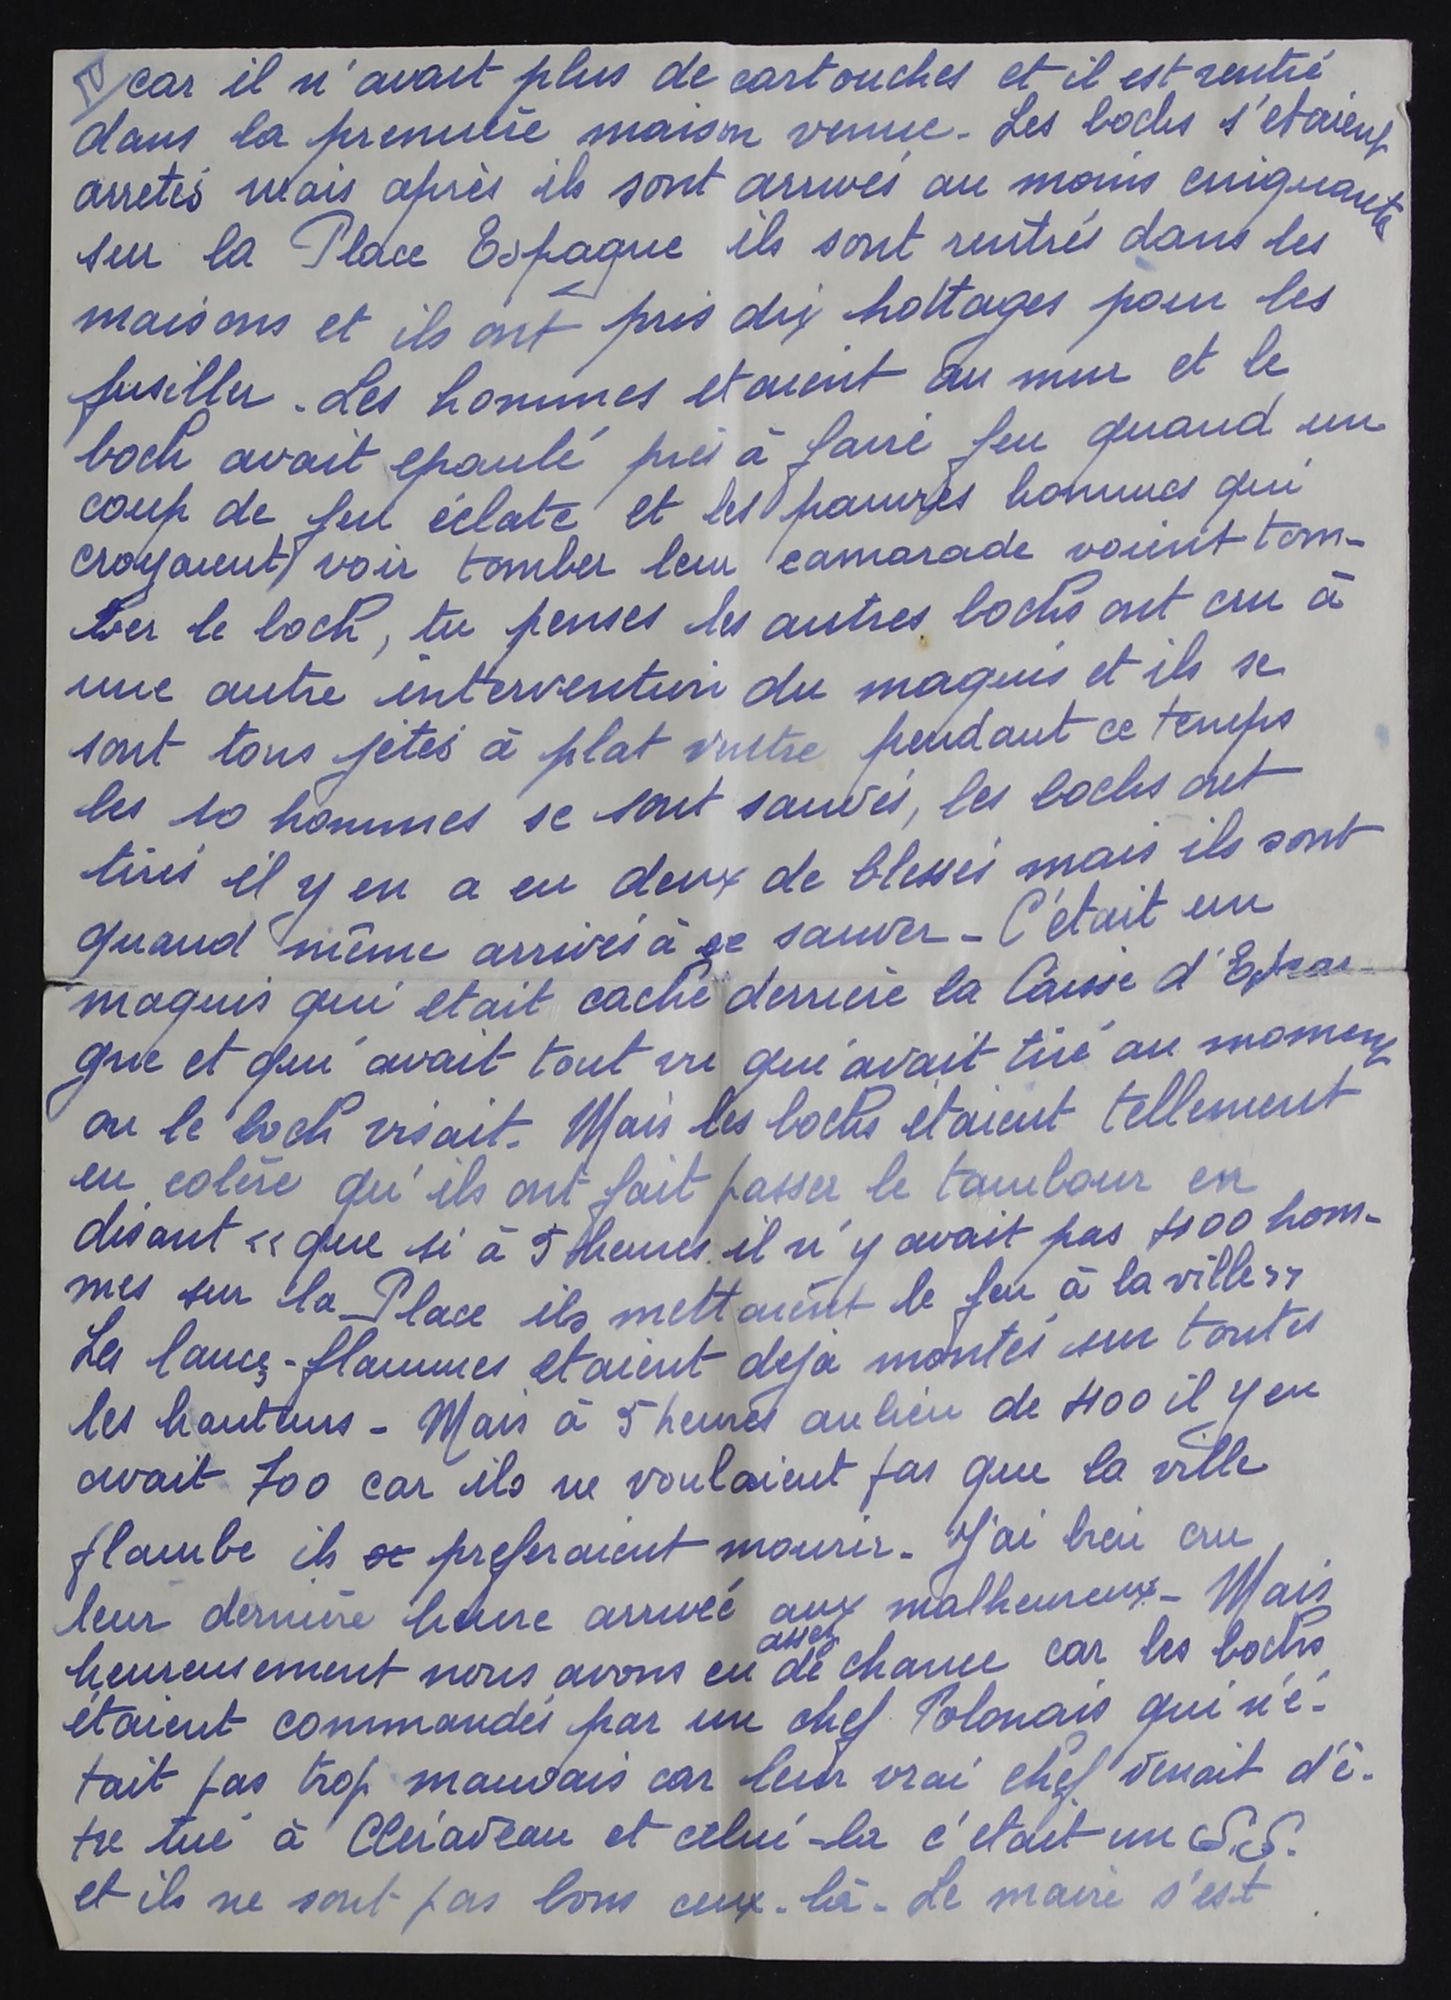 IV car il n'avait plus de cartouches et il est rentré
dans la première maison venue. Les bochs s'etaient
arretés mais après ils sont arrivés au moins cinquante
sur la Place Espagne ils sont rentrés dans les
maisons et ils ont pris dix hottages pour les
fusiller. Les hommes etaient au mur et le
boch avait epaulé près à faire feu quand un
coup de feu éclate et les pauvres hommes qui
croyaient voir tomber leur camarade voient tom-
ber le boch, tu penses les autres bochs ont cru à
une autre intervention du maquis et ils se
sont tous jetés à plat ventre pendant ce temps
les 10 hommes se sont sauvés, les bochs ont
tirés il y en a eu deux de blessés mais ils sont
quand même arrivés à se sauver - C'était un
maquis qui etait caché derrière la Caisse d'Epar-
gne et qui avait tout vu qui avait tiré au moment
ou le boch visait. Mais les bochs etaient tellement
en colère qu'ils ont fait passer le tambour en
disant << que si à 5 heures il n'y avait pas 400 hom-
mes sur la Place ils mettaient le feu à la ville >>
Les lances-flammes etaient deja montés sur toutes
les hauteurs - Mais à 5 heures au lieu de 400 il y en
avait 700 car ils ne voulaient pas que la ville
flambe ils se preferaient mourir. J'ai bien cru
leur dernière heure arrivée aux malheureux - Mais
heureusement nous avons eu assez de chance car les bochs
étaient commandés par un chef Polonais qui n'é-
tait pas trop mauvais car leur vrai chef venait d'ê-
tre tué à Cléradeau et celui-la c'etait un S.S.
et ils ne sont pas bons ceux-là - Le maire s'est